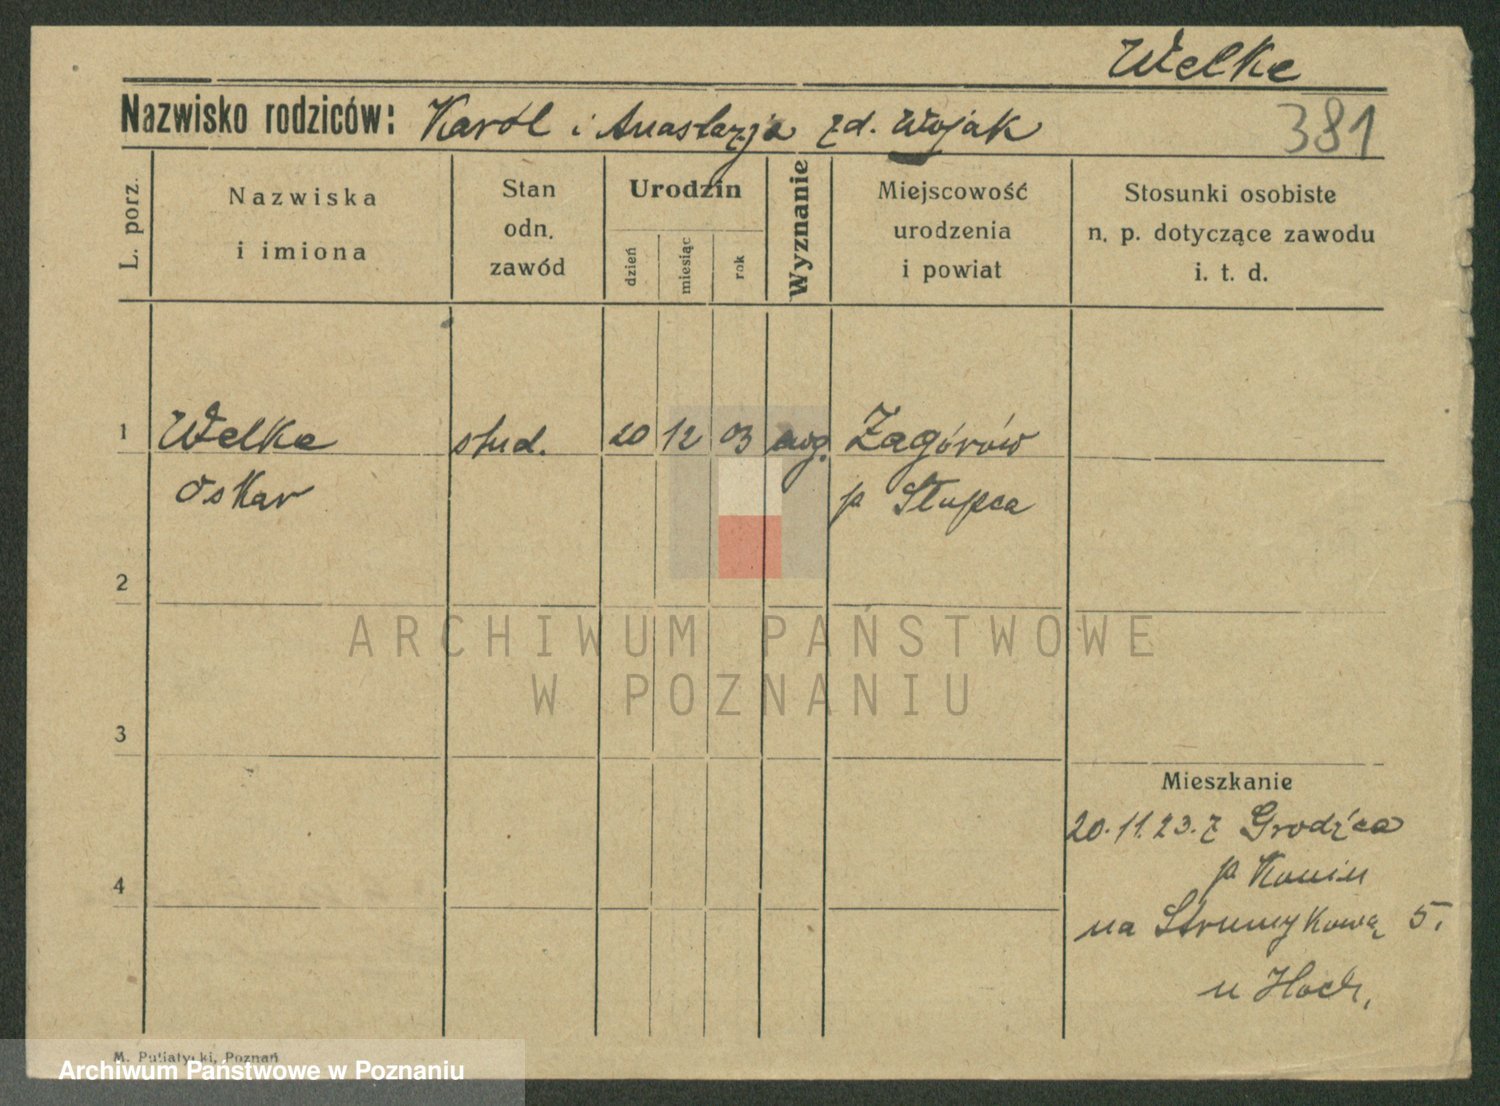 Welke
Nazwisko rodziców: Karól i Anastazja zd. Wojak
381
L. porz.
Nazwiska
i imiona
Stan
odn.
zawód
Urodzin
dzień
miesiąc
rok
Wyznanie
Miejscowość
urodzenia
i powiat
Stosunki osobiste
n. p. dotyczące zawodu
i. t. d.
1 Welke stud. 20 12 03 ewg. Zagórów
Oskar p Słupca
2
ARCHIWUM PAŃSTWOWE
W POZNANIU
3
Mieszkanie
20.11.23. z Grodźca
p Konin
4
na Strumykową 5.
u Hoch,
M. Putiatycki, Poznań
Archiwum Państwowe w Poznaniu